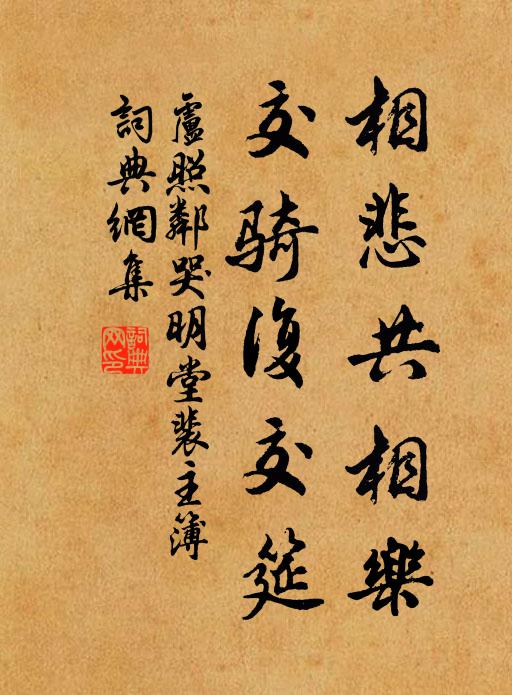 相悲共相樂
交騎復交筵
盧照鄰哭明堂裴主簿
詞典網集
詞典網印